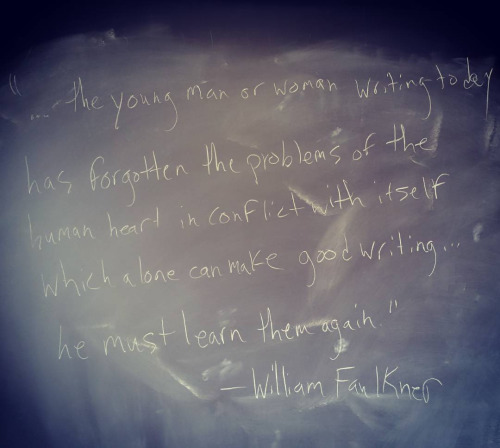 "... the young man or woman writing today
has forgotten the problems of the
human heart in conflict with itself
which alone can make good writing...
he must learn them again."
- William Faulkner